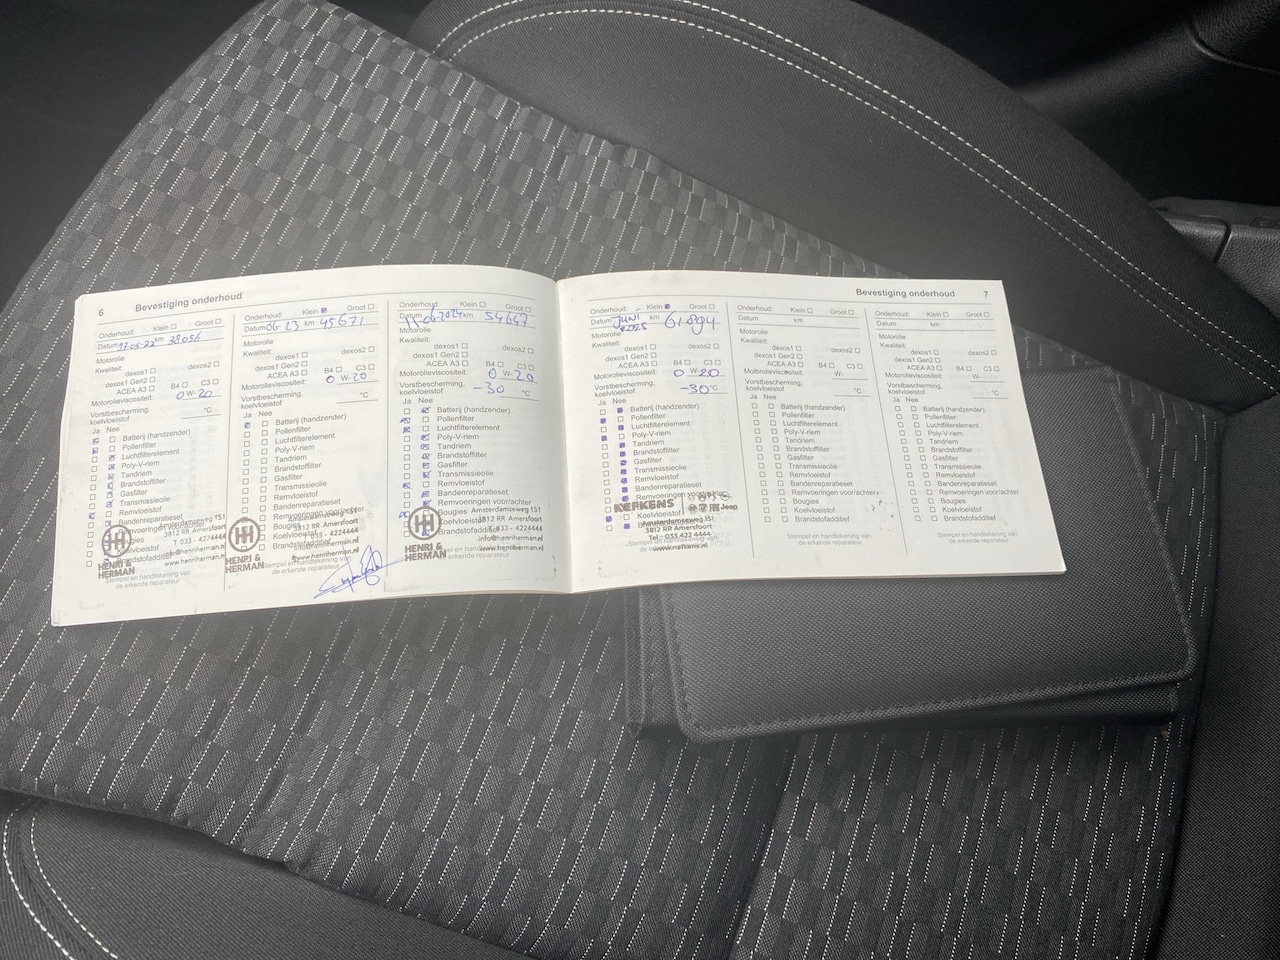 6 Bevestiging onderhoud
Onderhoud: Klein Groot
Datum 17-05-22 km 38056
Motorolie
Kwaliteit:
dexos1 dexos2
dexos1 Gen2
ACEA A3 B4 C3
Motorolieviscositeit: 0 W- 20
Vorstbescherming, koelvloeistof °C
Ja Nee
Batterij (handzender)
Pollenfilter
Luchtfilterelement
Poly-V-riem
Tandriem
Brandstoffilter
Gasfilter
Transmissieolie
Bandenreparatieset
Koelvloeistof
Brandstofadditief
HENRI & HERMAN
Amsterdamseweg 151
3812 RR Amersfoort
T 033 - 4224444
info@henriherman.nl
www.henriherman.nl
Stempel en handtekening van
de erkende reparateur
Onderhoud: Klein Groot
Datum 06-23 km 45671
Motorolie
Kwaliteit:
dexos1 dexos2
dexos1 Gen2
ACEA A3 B4 C3
Motorolieviscositeit: 0 W- 20
Vorstbescherming, koelvloeistof °C
Ja Nee
Batterij (handzender)
Pollenfilter
Luchtfilterelement
Poly-V-riem
Tandriem
Brandstoffilter
Gasfilter
Transmissieolie
Remvloeistof
Bandenreparatieset
Remvoeringen voor/achter
Bougies
Koelvloeistof
Brandstofadditief
HENRI & HERMAN
Amsterdamseweg 151
3812 RR Amersfoort
033 - 4224444
info@henriherman.nl
www.henriherman.nl
Stempel en handtekening van
de erkende reparateur
Onderhoud: Klein Groot
Datum 11-06-2024 km 54647
Motorolie
Kwaliteit:
dexos1 dexos2
dexos1 Gen2
ACEA A3 B4 C3
Motorolieviscositeit: 0 W- 20
Vorstbescherming, koelvloeistof -30 °C
Ja Nee
Batterij (handzender)
Pollenfilter
Luchtfilterelement
Poly-V-riem
Tandriem
Brandstoffilter
Gasfilter
Transmissieolie
Remvloeistof
Bandenreparatieset
Remvoeringen voor/achter
Bougies
Koelvloeistof
Brandstofadditief
HENRI & HERMAN
Amsterdamseweg 151
3812 RR Amersfoort
T 033 - 4224444
info@henriherman.nl
www.henriherman.nl
Stempel en handtekening van
de erkende reparateur
Bevestiging onderhoud 7
Onderhoud: Klein Groot
Datum JUNI 2025 km 61894
Motorolie
Kwaliteit:
dexos1 dexos2
dexos1 Gen2
ACEA A3 B4 C3
Motorolieviscositeit: 0 W- 20
Vorstbescherming, koelvloeistof -30 °C
Ja Nee
Batterij (handzender)
Pollenfilter
Luchtfilterelement
Poly-V-riem
Tandriem
Brandstoffilter
Gasfilter
Transmissieolie
Remvloeistof
Bandenreparatieset
Remvoeringen voor/achter
Koelvloeistof
Brandstofadditief
NEFKENS
Jeep
Amsterdamseweg 151
3812 RR Amersfoort
Tel.: 033 422 4444
www.nefkens.nl
Stempel en handtekening van
de erkende reparateur
Onderhoud: Klein Groot
Datum km
Motorolie
Kwaliteit:
dexos1 dexos2
dexos1 Gen2
ACEA A3 B4 C3
Motorolieviscositeit: W-
Vorstbescherming, koelvloeistof °C
Ja Nee
Batterij (handzender)
Pollenfilter
Luchtfilterelement
Poly-V-riem
Tandriem
Brandstoffilter
Gasfilter
Transmissieolie
Remvloeistof
Bandenreparatieset
Remvoeringen voor/achter
Bougies
Koelvloeistof
Brandstofadditief
Stempel en handtekening van
de erkende reparateur
Onderhoud: Klein Groot
Datum km
Motorolie
Kwaliteit:
dexos1 dexos2
dexos1 Gen2
ACEA A3 B4 C3
Motorolieviscositeit: W-
Vorstbescherming, koelvloeistof °C
Ja Nee
Batterij (handzender)
Pollenfilter
Luchtfilterelement
Poly-V-riem
Tandriem
Brandstoffilter
Gasfilter
Transmissieolie
Remvloeistof
Bandenreparatieset
Remvoeringen voor/achter
Bougies
Koelvloeistof
Brandstofadditief
Stempel en handtekening van
de erkende reparateur